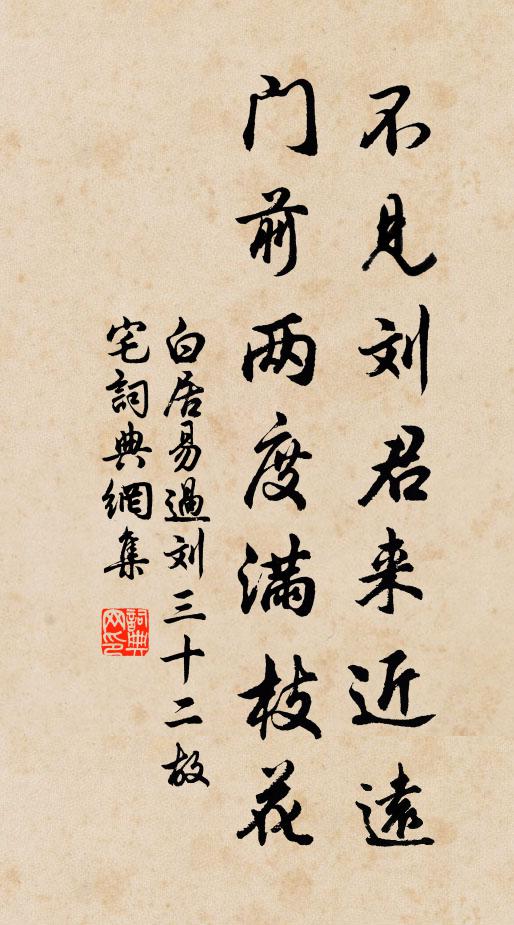 不见刘君来近远
门前两度满枝花
白居易過刘三十二故
宅詞典網集
詞典网印